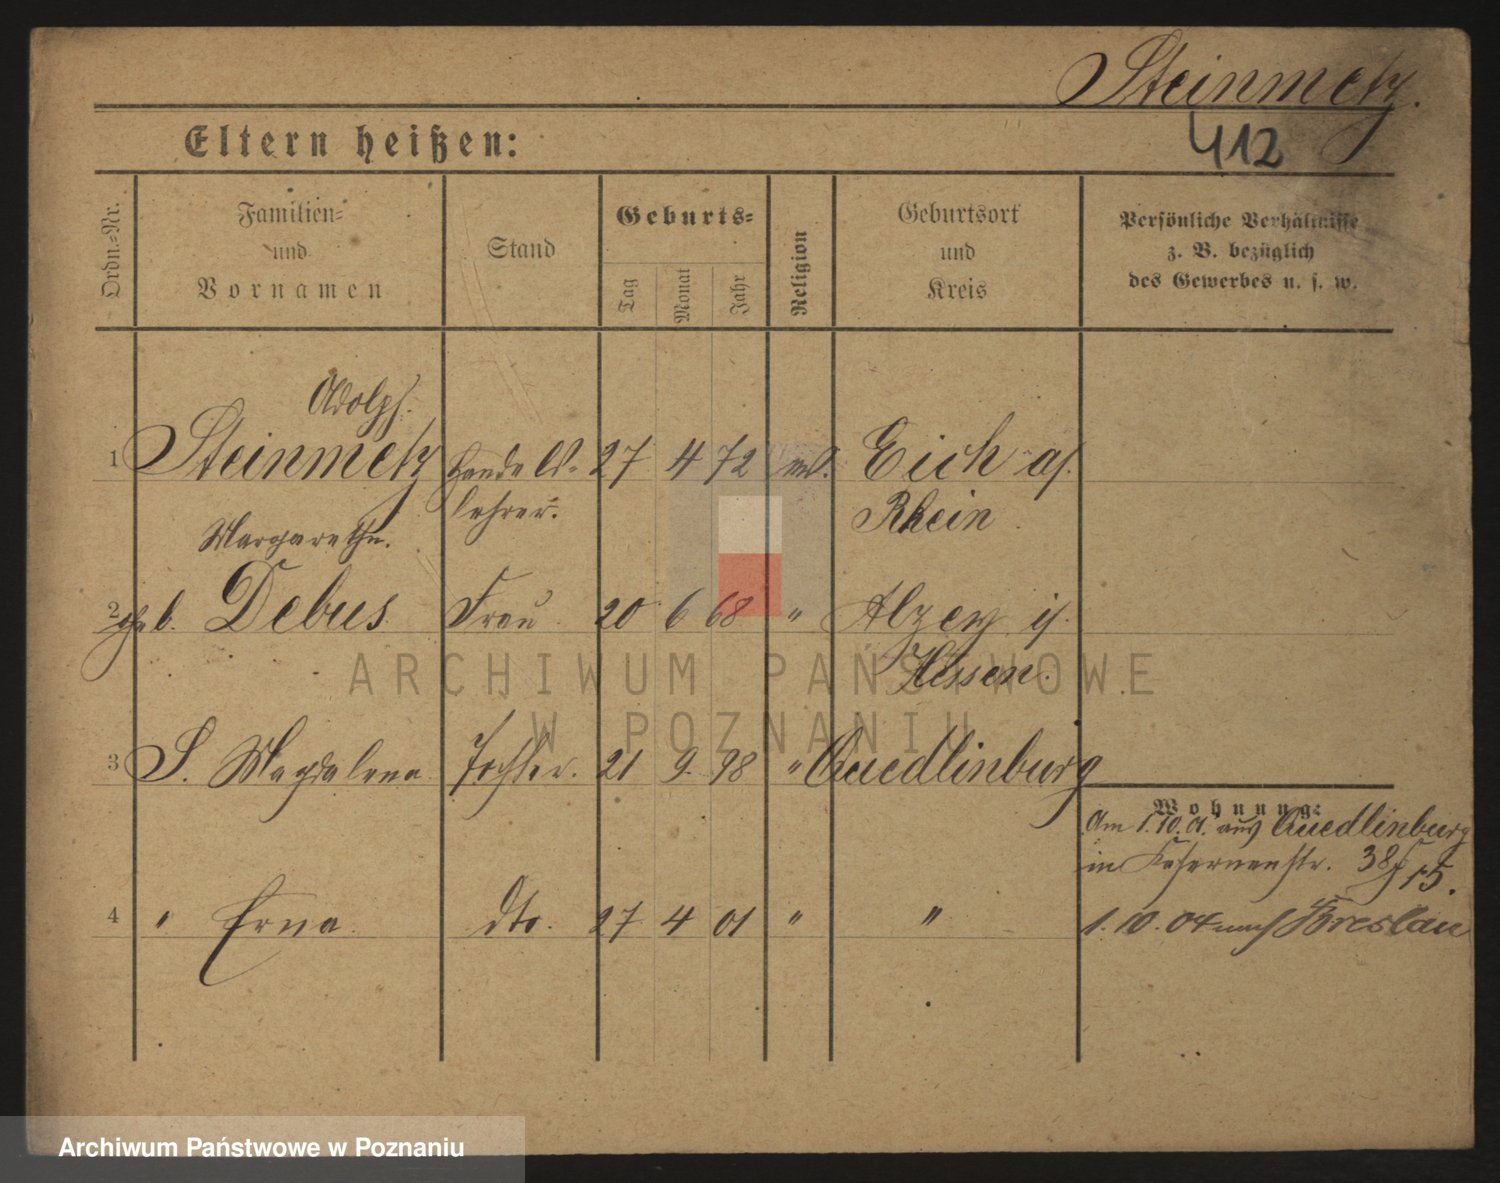 Steinmetz.
412
Eltern heißen:
Ordn.-Nr.
Familien-
und
Vornamen
Stand
Geburts-
Tag
Monat
Jahr
Religion
Geburtsort
und
Kreis
Persönliche Verhältnisse
z. B. bezüglich
des Gewerbes u. s. w.
Adolph.
1 Steinmetz Handels- 27 4 72 Eich a/.
lehrer. Rhein
Margarethe.
2 geb. Debus Frau 20 6 68 " Alzey i/.
Hessen.
3 S. Magdalena Tochter. 21 9. 98 " Quedlinburg
Wohnung:
Am 1.10.01. aus Quedlinburg
in Kasernenstr. 38 15.
4 " Erna dto. 27 4 01 " " 1. 10. 04 nach Breslau
ARCHIWUM PAŃSTWOWE
W POZNANIU
Archiwum Państwowe w Poznaniu